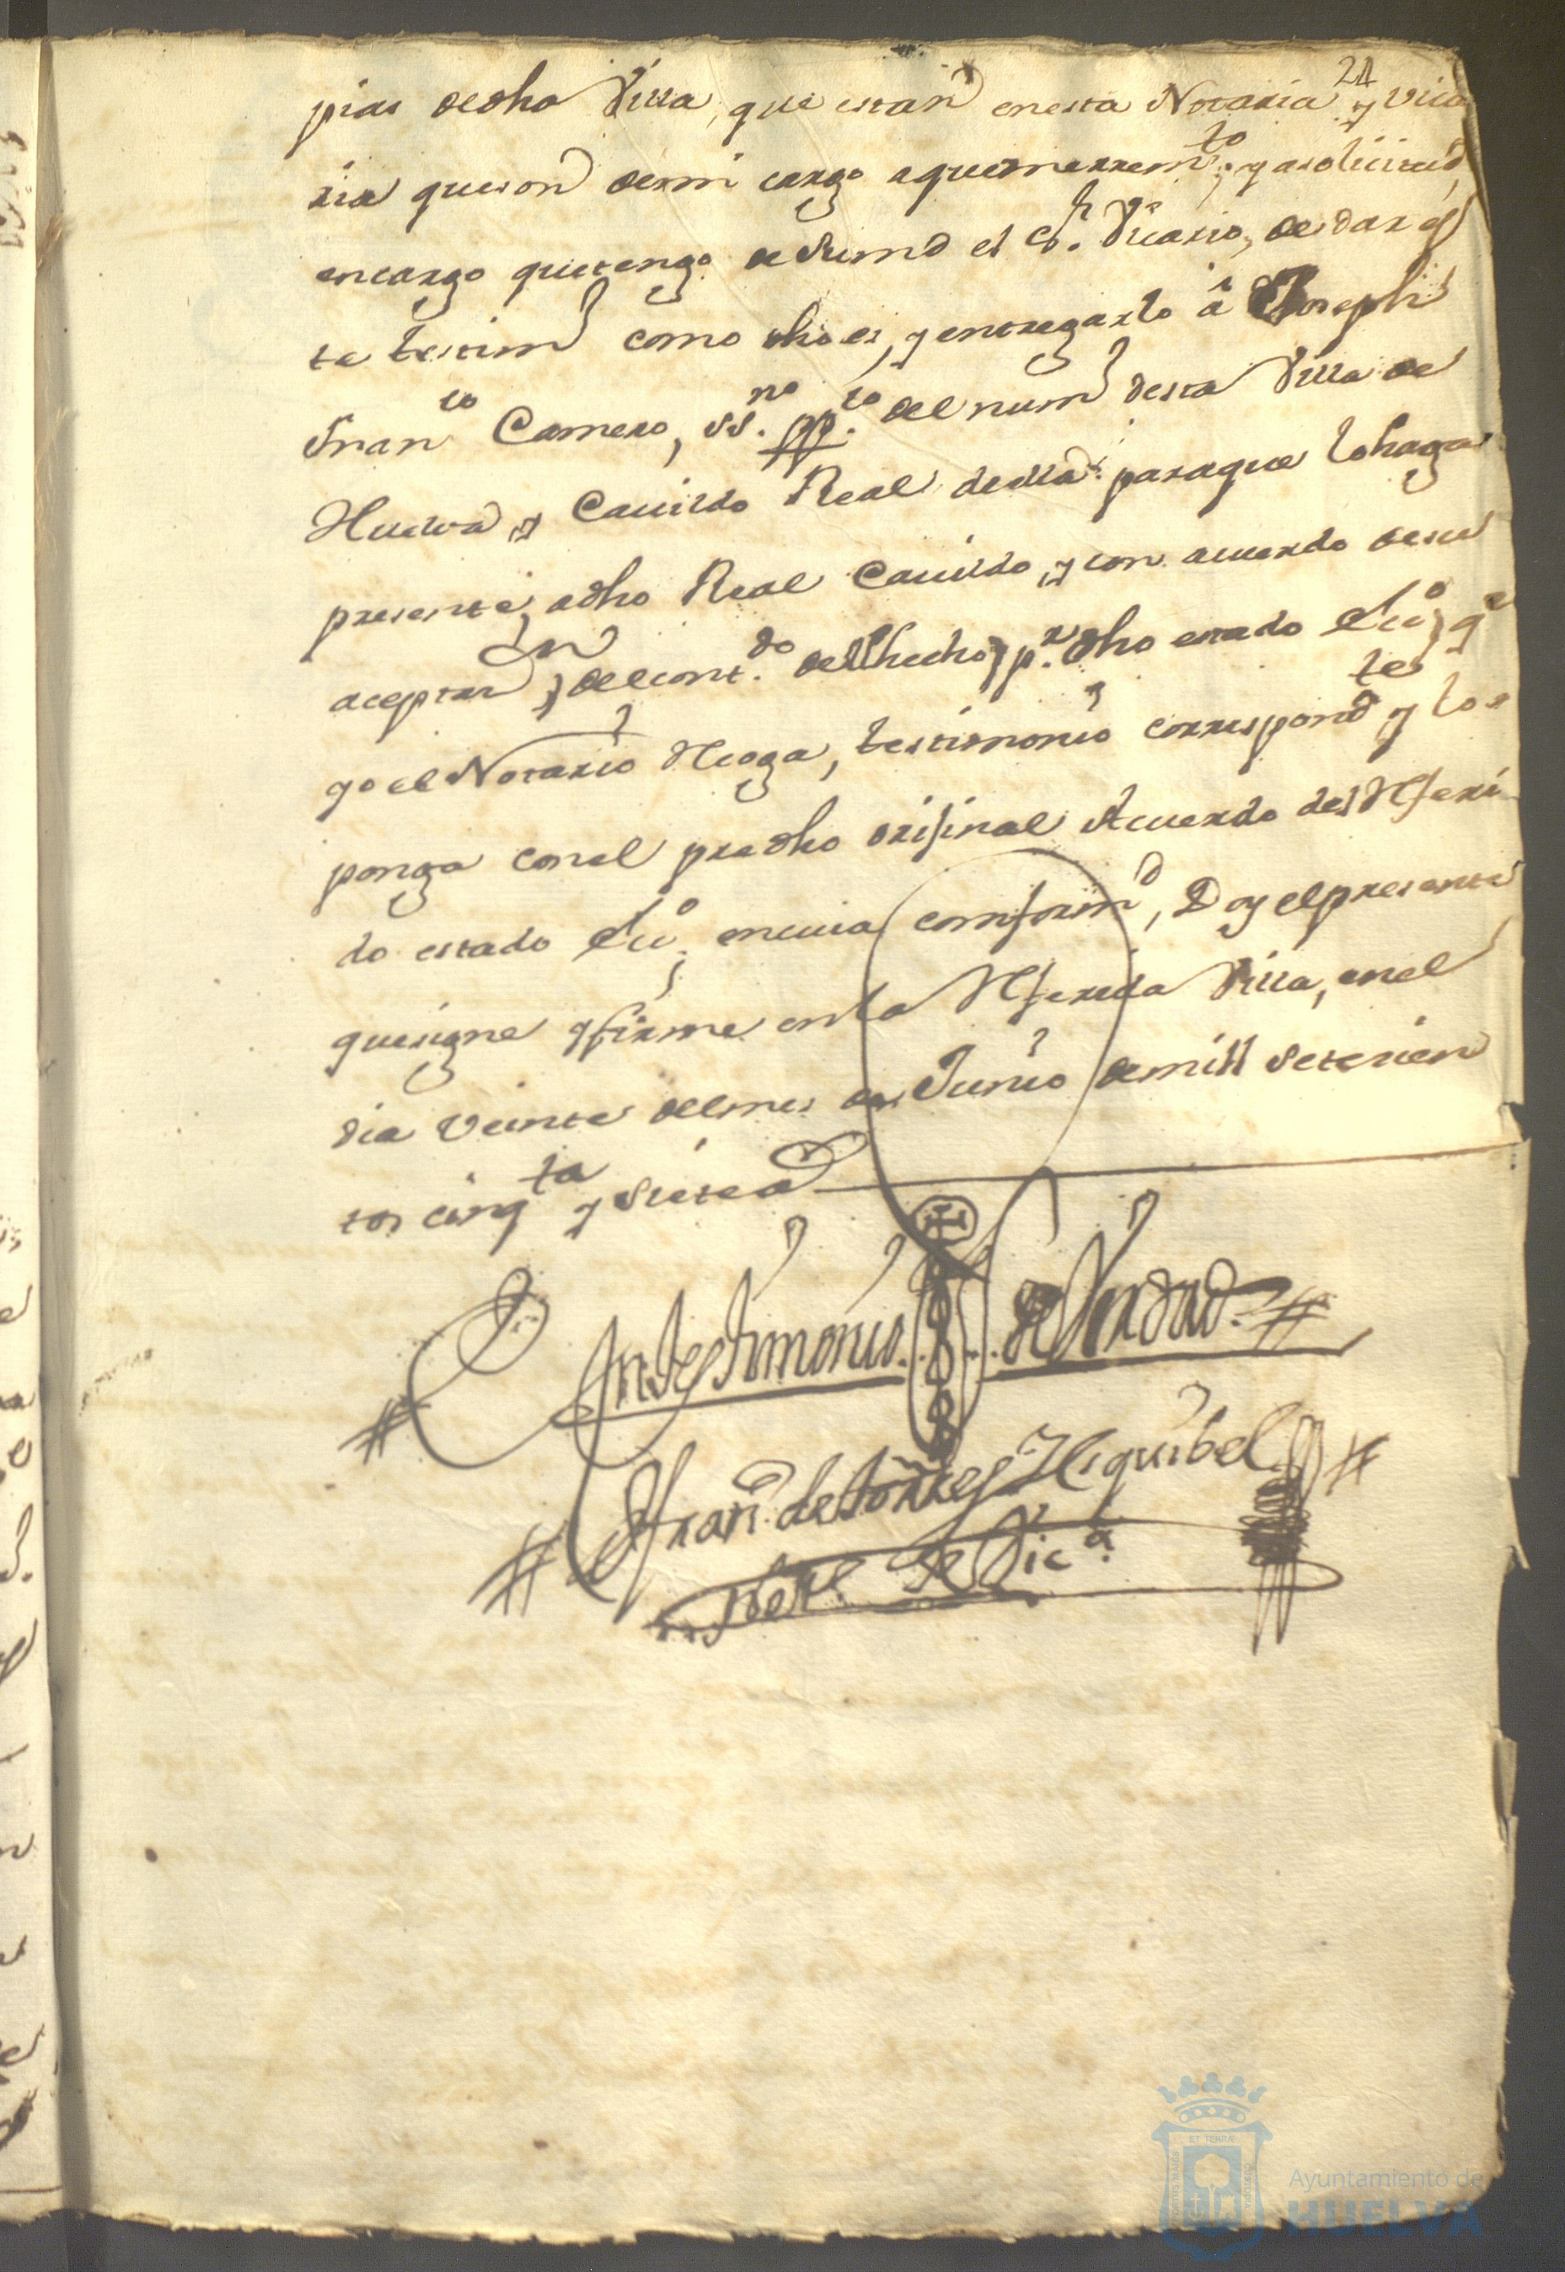 21
pias dedha Villa, que estan en esta Notaria y Vica
ria que son de mi cargo a que me rrem.to y a solicitud,
encargo que tengo de sumd el S.r Vicario, de dar es
te testim como dho es, y entregarlo â Joseph
Fran.co Camero, ss.no pp.co del num desta Villa de
Huelva y Cavildo Real della: para que lo haga
presente, a dho Real Cavildo, y con acuerdo de su
aceptan del cont.do del hecho p.r dho estado Ec.o q.e
go el Notario Recoga, testimonio correspond.te y lo
ponga con el predho orijinal Acuerdo del Referi
do estado Ec.o, en cuia comform.d, Doy el presente
que signe y firme en la Referida Villa, en el
dia veinte del mes de Junio de mill setecien
tos cinq.ta y siete a
En testimonio de Verdad
Fran.co de Torres Hesquibel
Not.o de Vic.a
Ayuntamiento de
HUELVA